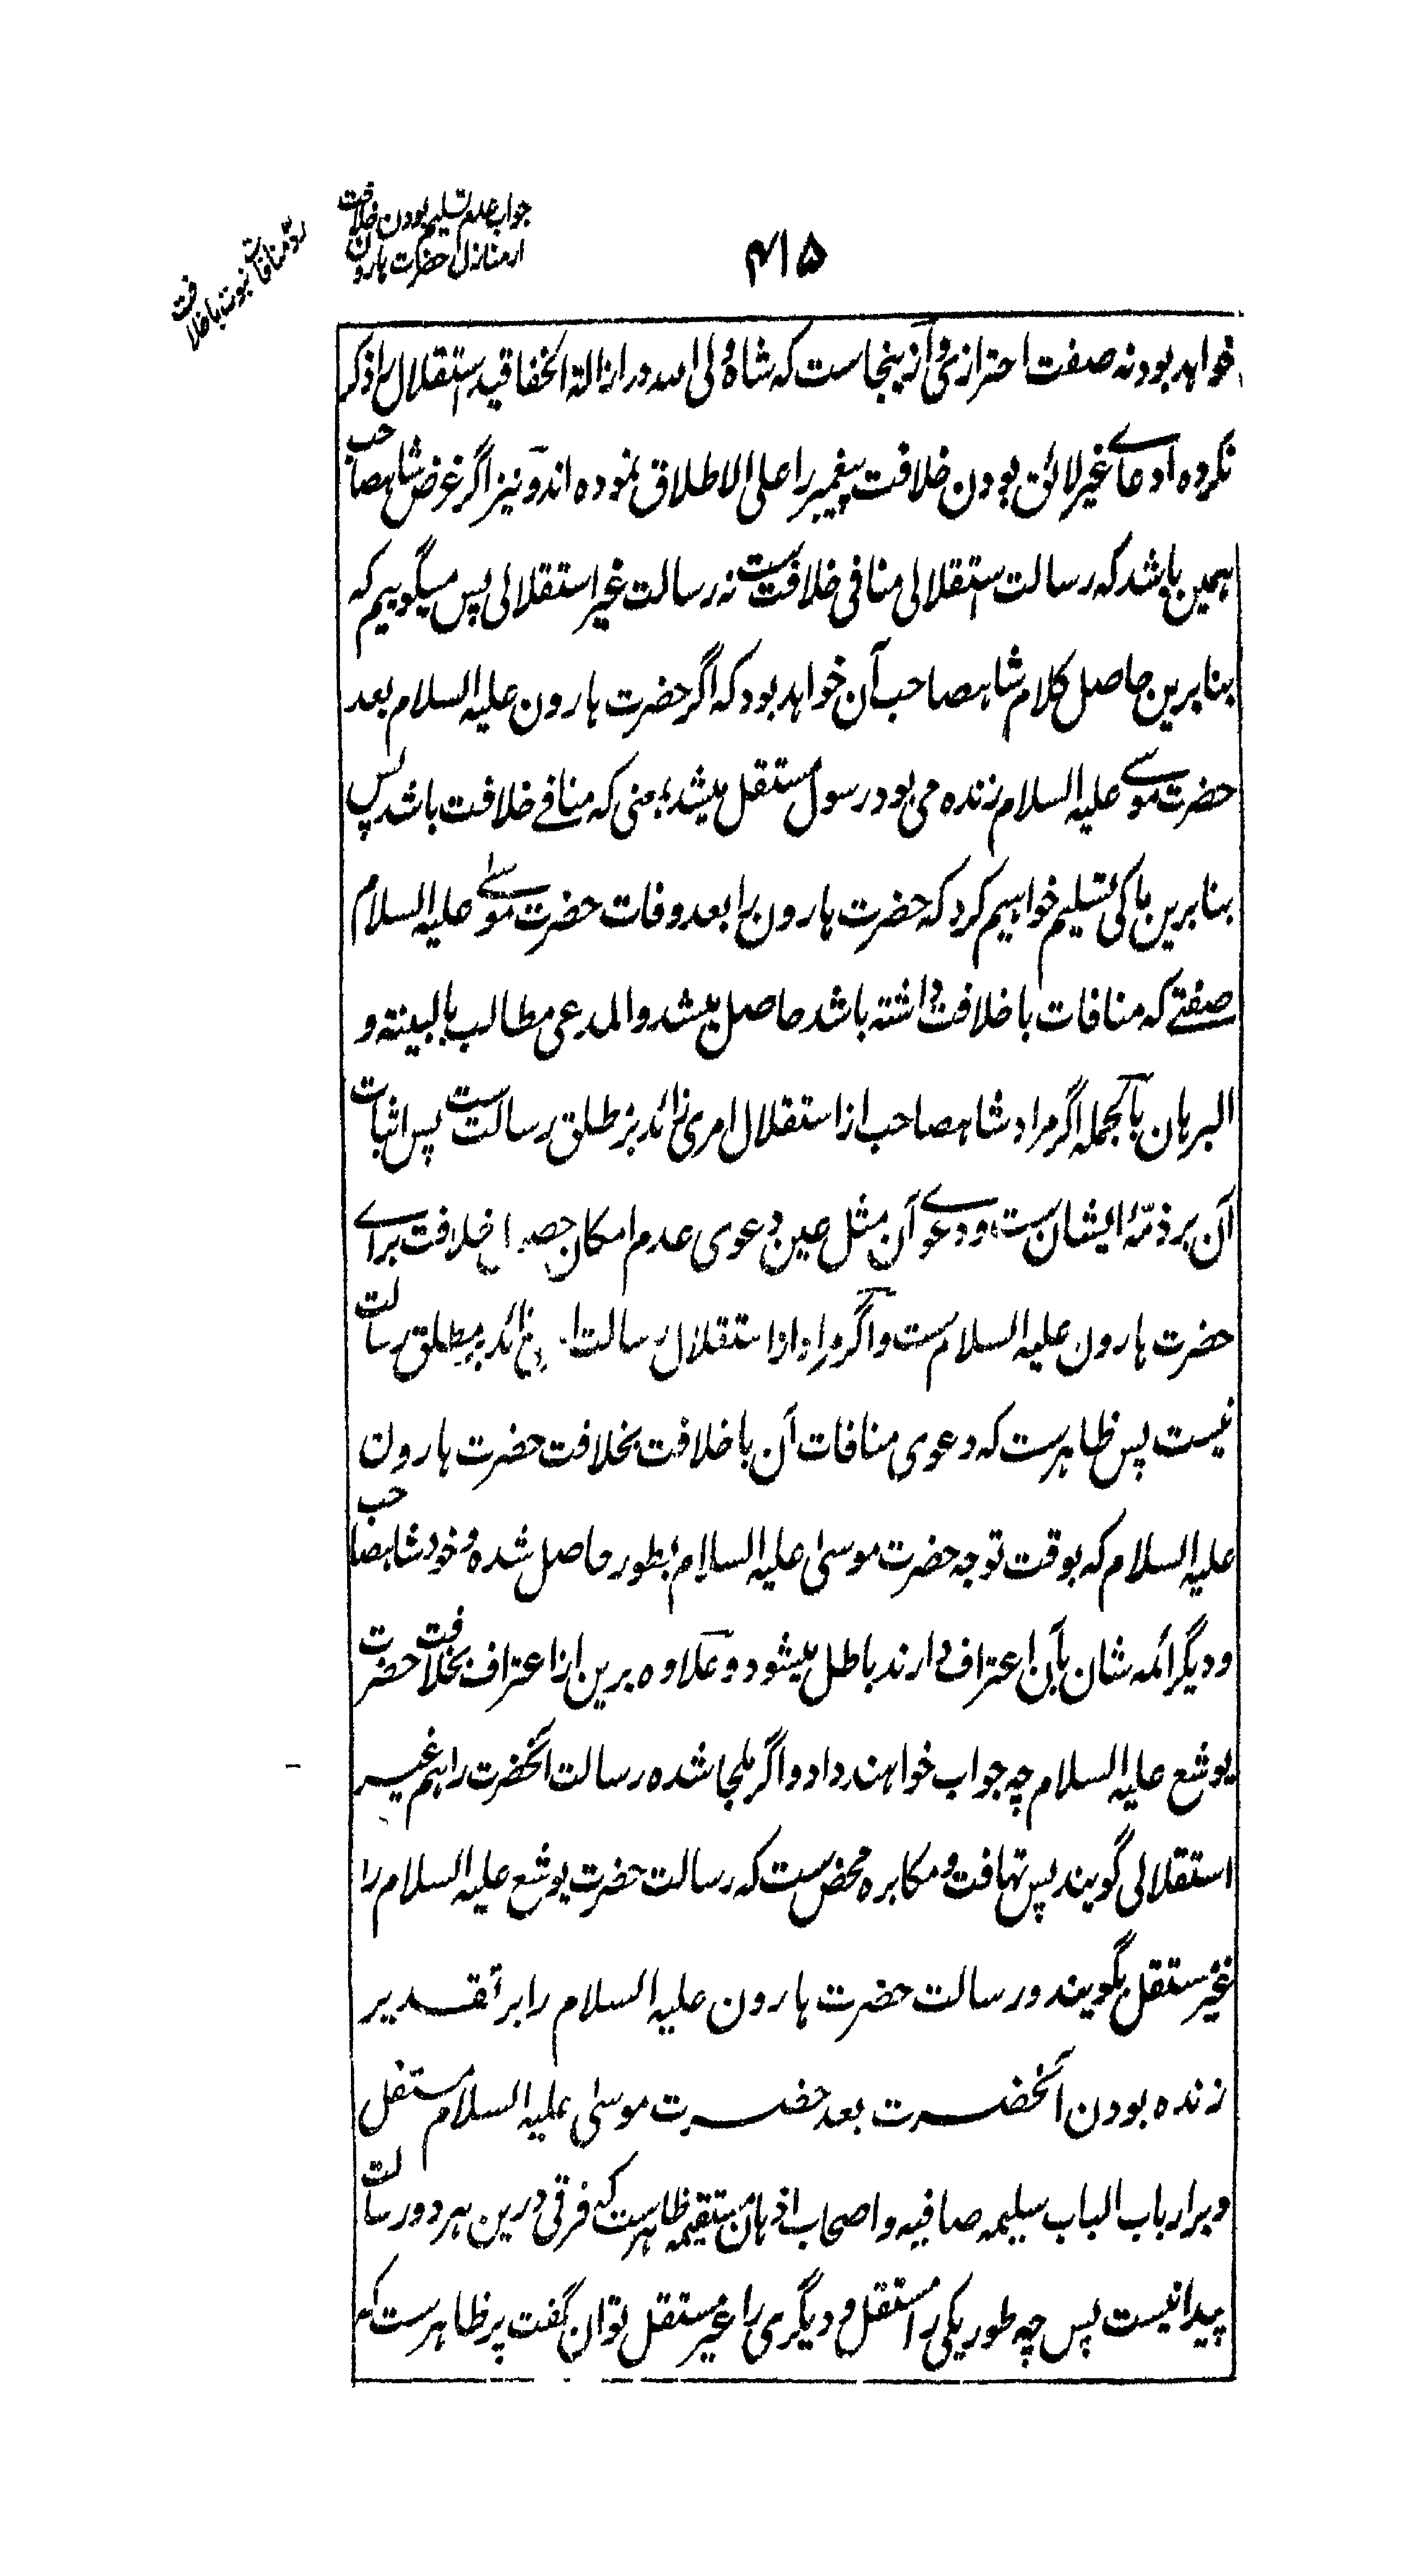 ۴۱۵
جواب عدم تسلیم بودن خلافت
از منازل حضرت هارون
رد منافات نبوت با خلافت
خواهد بود نه صفت احترازی و ازینجاست که شاه ولی الله در ازالة الخفا قید استقلال را ذکر
نکرده ادعای غیر لائق بودن خلافت پیغمبر را علی الاطلاق نموده اند و نیز اگر غرض شاهصاحب
همین باشد که رسالت استقلالی منافی خلافت ست نه رسالت غیر استقلالی پس میگوییم که
بنابرین حاصل کلام شاهصاحب آن خواهد بود که اگر حضرت هارون علیه السلام بعد
حضرت موسے علیه السلام زنده می بود رسول مستقل میشد بمعنی که منافے خلافت باشد پس
بنابرین ما کی تسلیم خواهیم کرد که حضرت هارون را بعد وفات حضرت موسے علیه السلام
صفتے که منافات با خلافت داشته باشد حاصل میشد والمدعی مطالب بالبینة و
البرهان بالجمله اگر مراد شاهصاحب از استقلال امری زائد بر مطلق رسالت ست پس اثبات
آن بر ذمّهٔ ایشان ست و دعوے آن مثل عین دعوی عدم امکان خلافت برای
حضرت هارون علیه السلام ست و اگر مراد از استقلال رسالت زائد بر مطلق رسالت
نیست پس ظاهرست که دعوی منافات آن با خلافت بخلافت حضرت هارون
علیه السلام که بوقت توجه حضرت موسیٰ علیه السلام بطور حاصل شده و خود شاهصاحب
و دیگر ائمه شان بآن اعتراف دارند باطل میشود و علاوه برین از اعتراف بخلافت حضرت
یوشع علیه السلام چه جواب خواهند داد و اگر ملجا شده رسالت آنحضرت را هم غیر
استقلالی گویند پس تهافت و مکابره محض ست که رسالت حضرت یوشع علیه السلام را
غیر مستقل بگویند و رسالت حضرت هارون علیه السلام را بر تقدیر
زنده بودن آنحضرت بعد حضرت موسیٰ علیه السلام مستقل
و بر ارباب الباب سلیمه صافیه و اصحاب اذهان مستقیمه ظاهرست که فرقی درین هر دو رسالت
پیدا نیست پس چه طور یکی را مستقل و دیگری را غیر مستقل توان گفت پر ظاهرست که